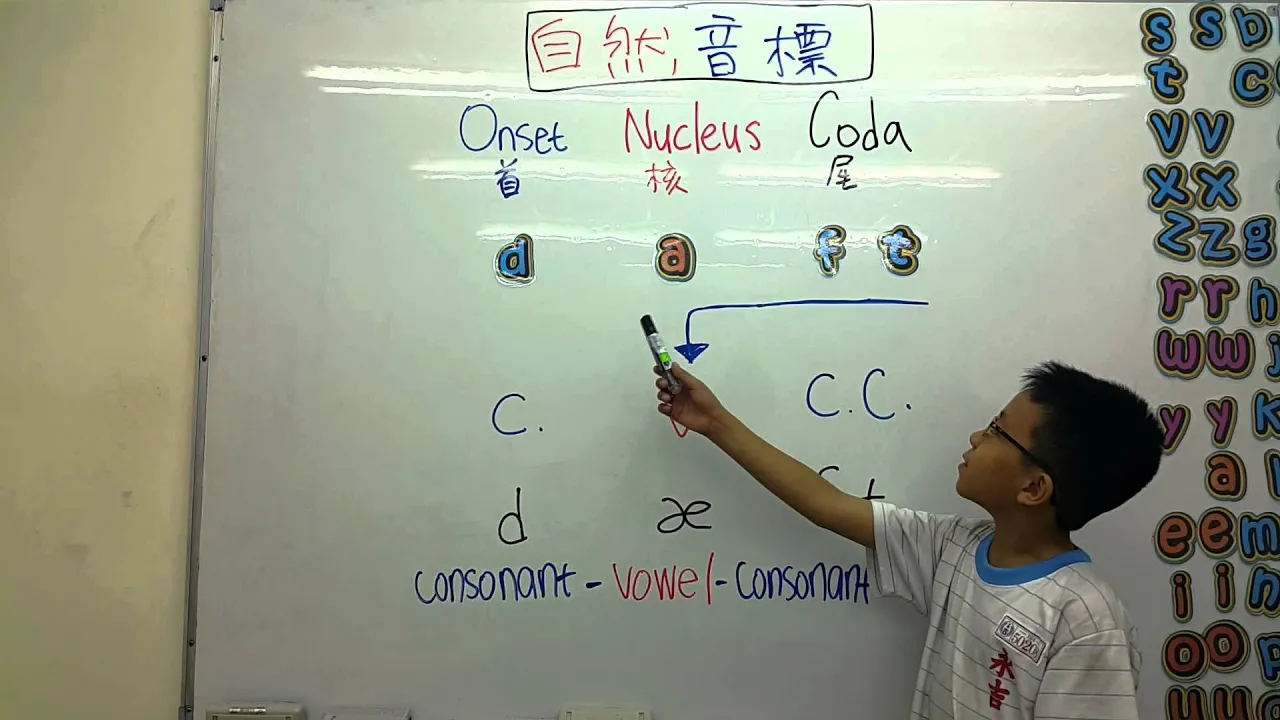 自然音標
Onset Nucleus Coda
首 核 尾
d a f t
C. C.C.
d æ
consonant - vowel - consonant
s s b
t c
v v
x x
z z g
r r h
w w j
y y k
a
e e m
i i n
o o p
u u
5020
永吉